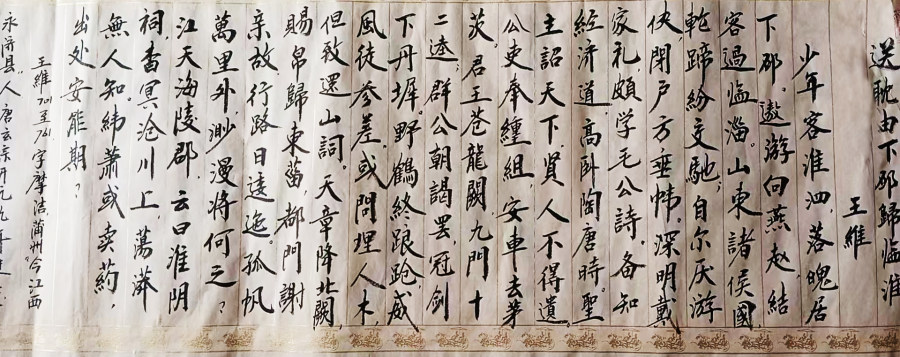 送耽由下邳歸临淮
王維
少年客淮泗,落魄居
下邳。遨游向燕赵,結
客過临淄。山東諸侯國,
乾蹄紛交馳,自尔厌游
侠,閉户方垂帏。深明戴
家礼,頗学毛公詩。备知
經济道,高卧陶唐時。聖
主詔天下,賢人不得遺。
公吏奉纏組,安車去茅
茨。君王苍龍闕,九門十
二逵,群公朝謁罢,冠劍
下丹墀。野鶴終踉跄,威
風徒参差。或問理人木
但教還山詞。天章降北闕,
賜帛歸東菑,都門謝
亲故,行路日逶迤。孤帆
萬里外,渺漫将何之?
江天海陵郡,云日淮阴
祠。杳冥沧川上,荡漭
無人知。緯萧或卖药,
出处安能期?
王維701至761字摩洁蒲州"今江西
永济县"人唐